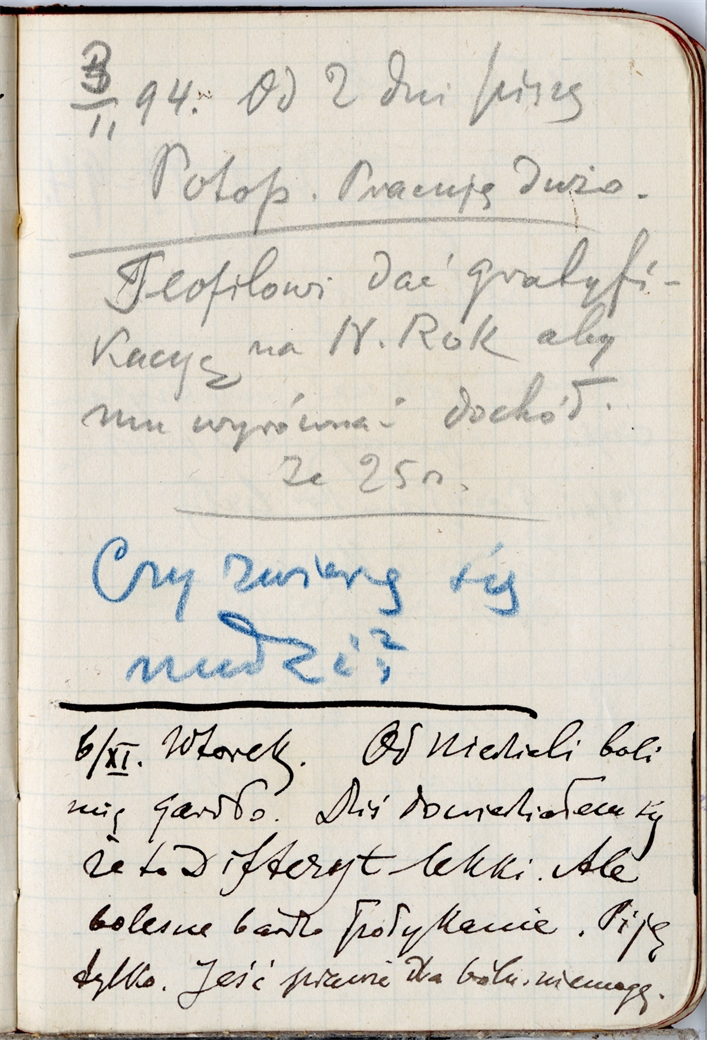 3/11 94. Od 2 dni piszę
Potop. Pracuję dużo.
Teofilowi dać gratyfi-
kacyę na N. Rok aby
mu wyrównać dochód.
ze 25 r.
Czy zwierzę się
nudzi?
6/XI. Wtorek. Od Niedzieli boli
mię gardło. Dziś dowiedziałem się
że to Difteryt lekki. Ale
bolesne bardzo połykanie. Piję
tylko. Jeść prawie dla bólu niemogę.